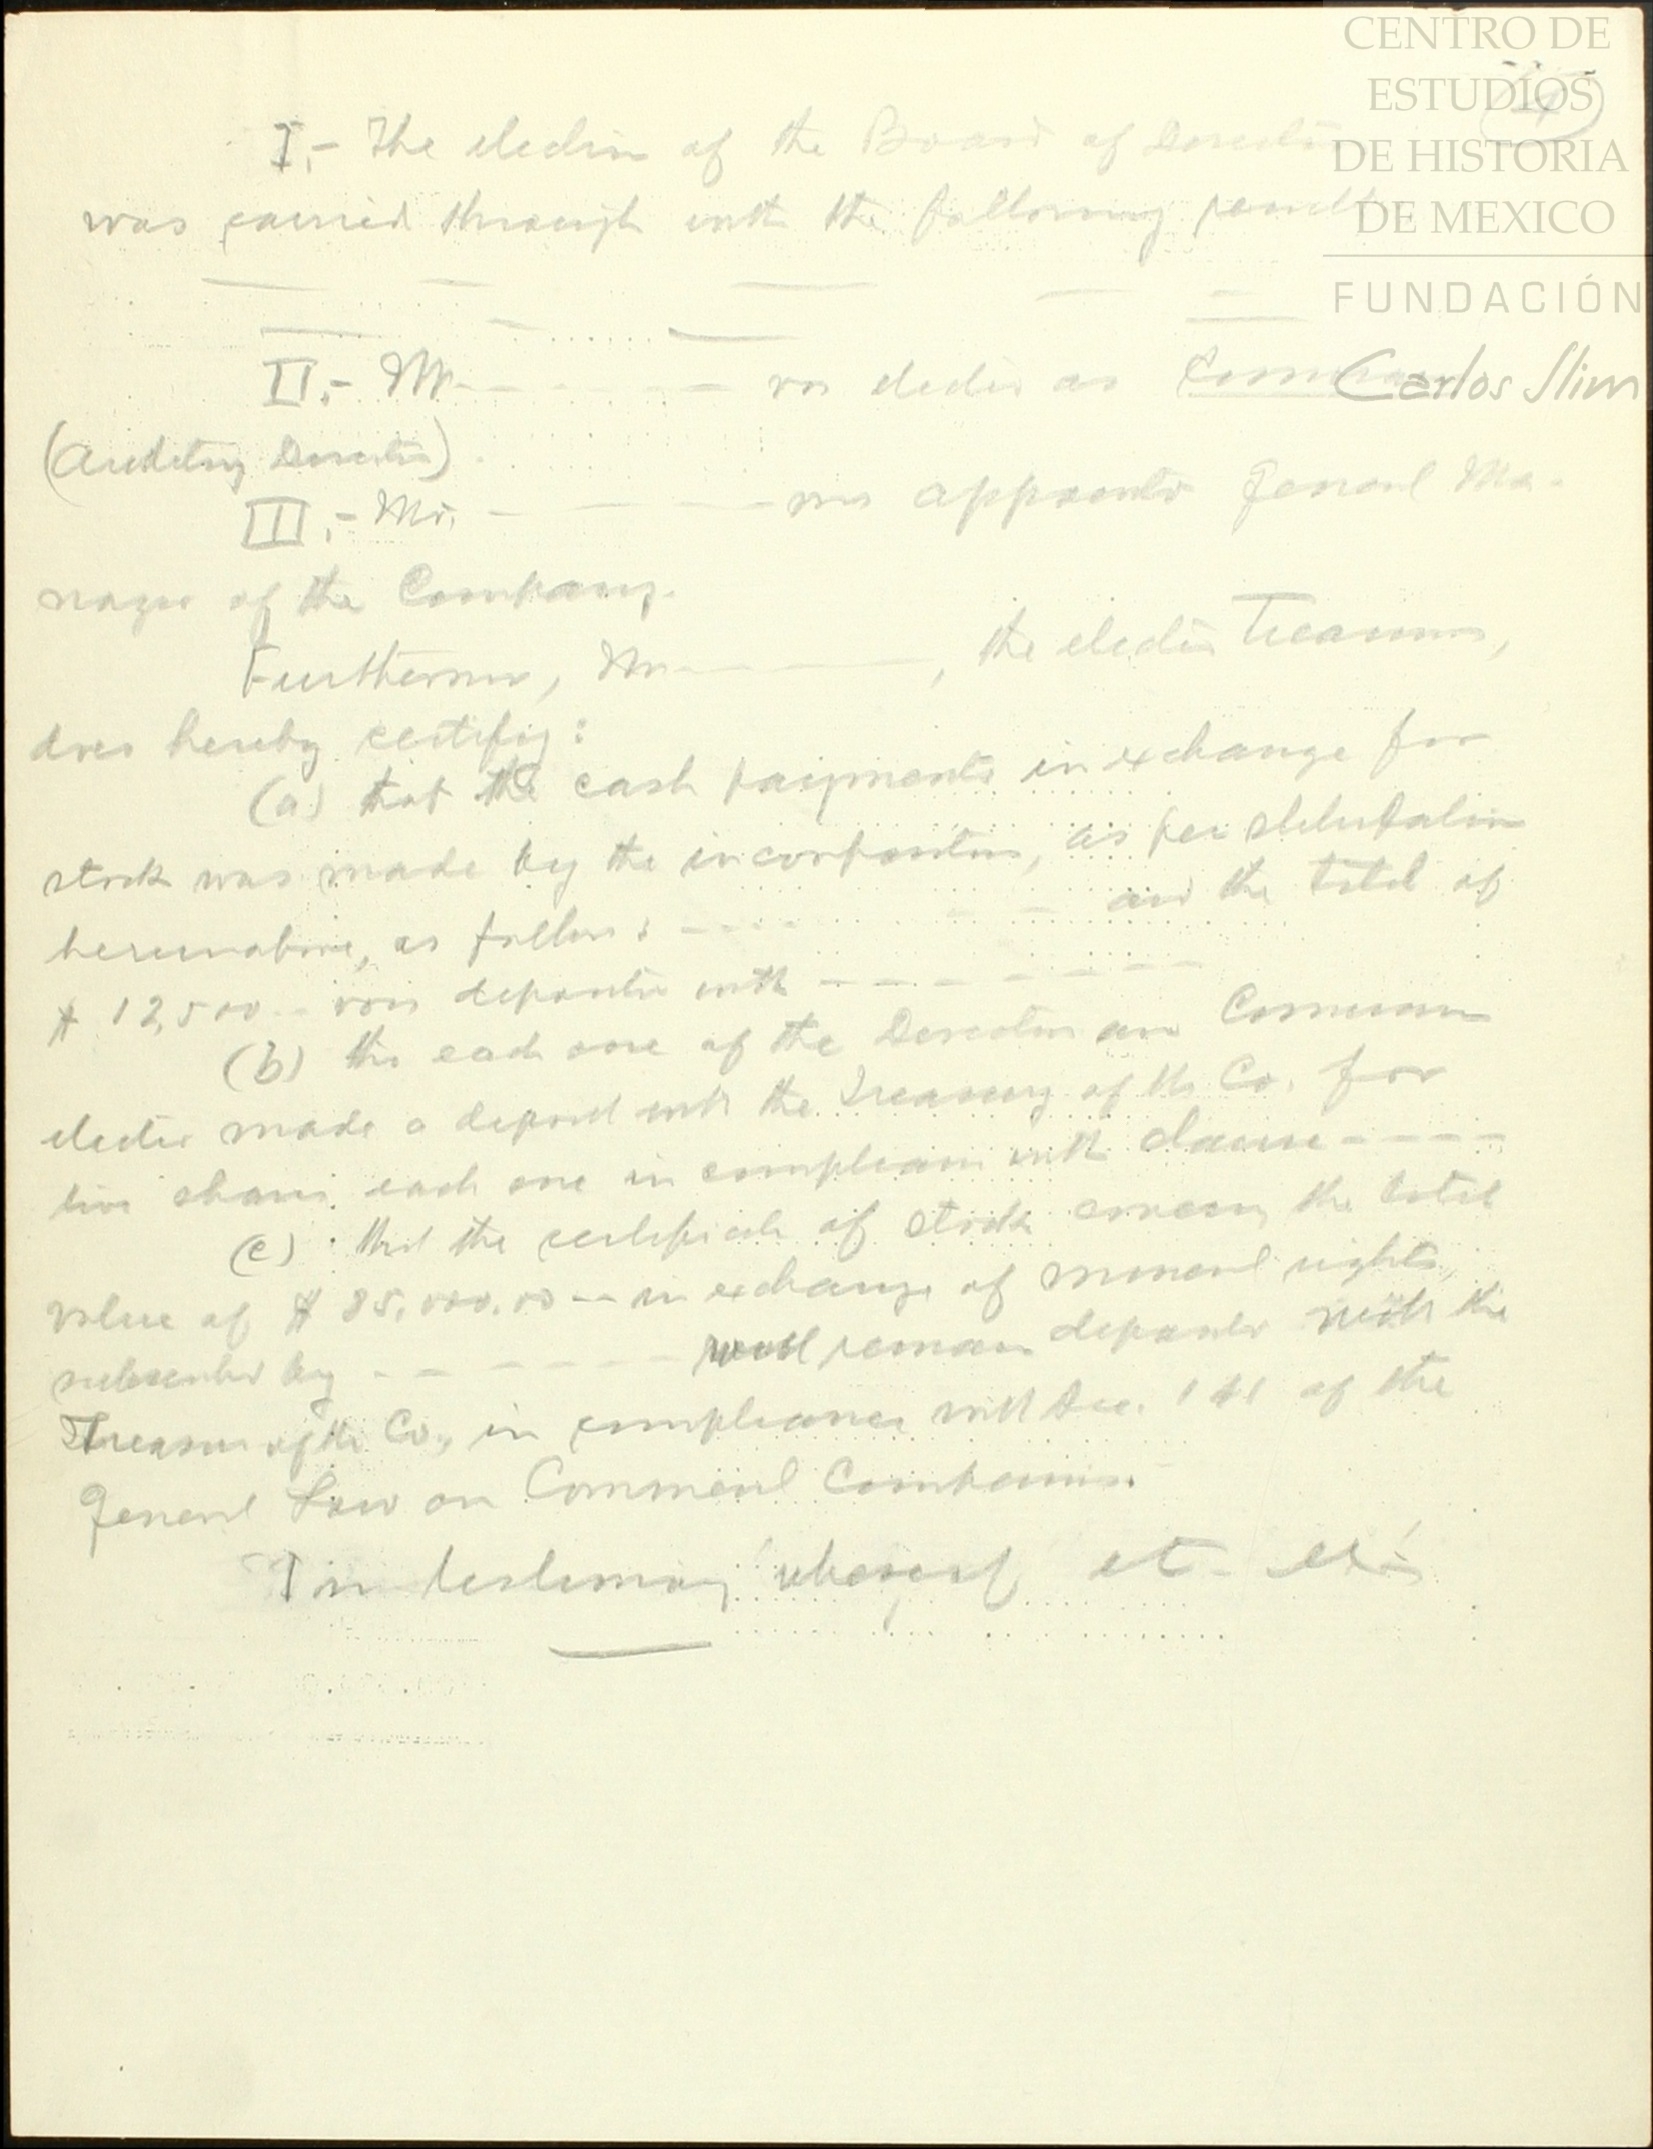 CENTRO DE
ESTUDIOS
DE HISTORIA
DE MEXICO
FUNDACIÓN
Carlos Slim
I.- The election of the Board of Directors
was carried through with the following result
II.- Mr. - - - - - was elected as
(Auditing Director).
III.- Mr. - - - was appointed General Ma-
nager of the Company.
Furthermore, Mr. - - - , the elected Treasurer,
does hereby certify:
(a) that the cash payments in exchange for
stock was made by the incorporators, as per
hereinabove, as follows: - - - - and the total of
$ 12,500 -- was deposited with - - - - - - -
(b) that each one of the Directors and
elected made a deposit with the Treasury of the Co. for
two shares each one in compliance with clause - - - -
(c) that the certificate of stock covering the total
value of $ 85,000.00 -- in exchange of mineral rights,
subscribed by - - - - - - - will remain deposited with the
Treasurer of the Co., in compliance with Sec. 141 of the
General Law on Commercial Companies.
In testimony whereof etc. etc.